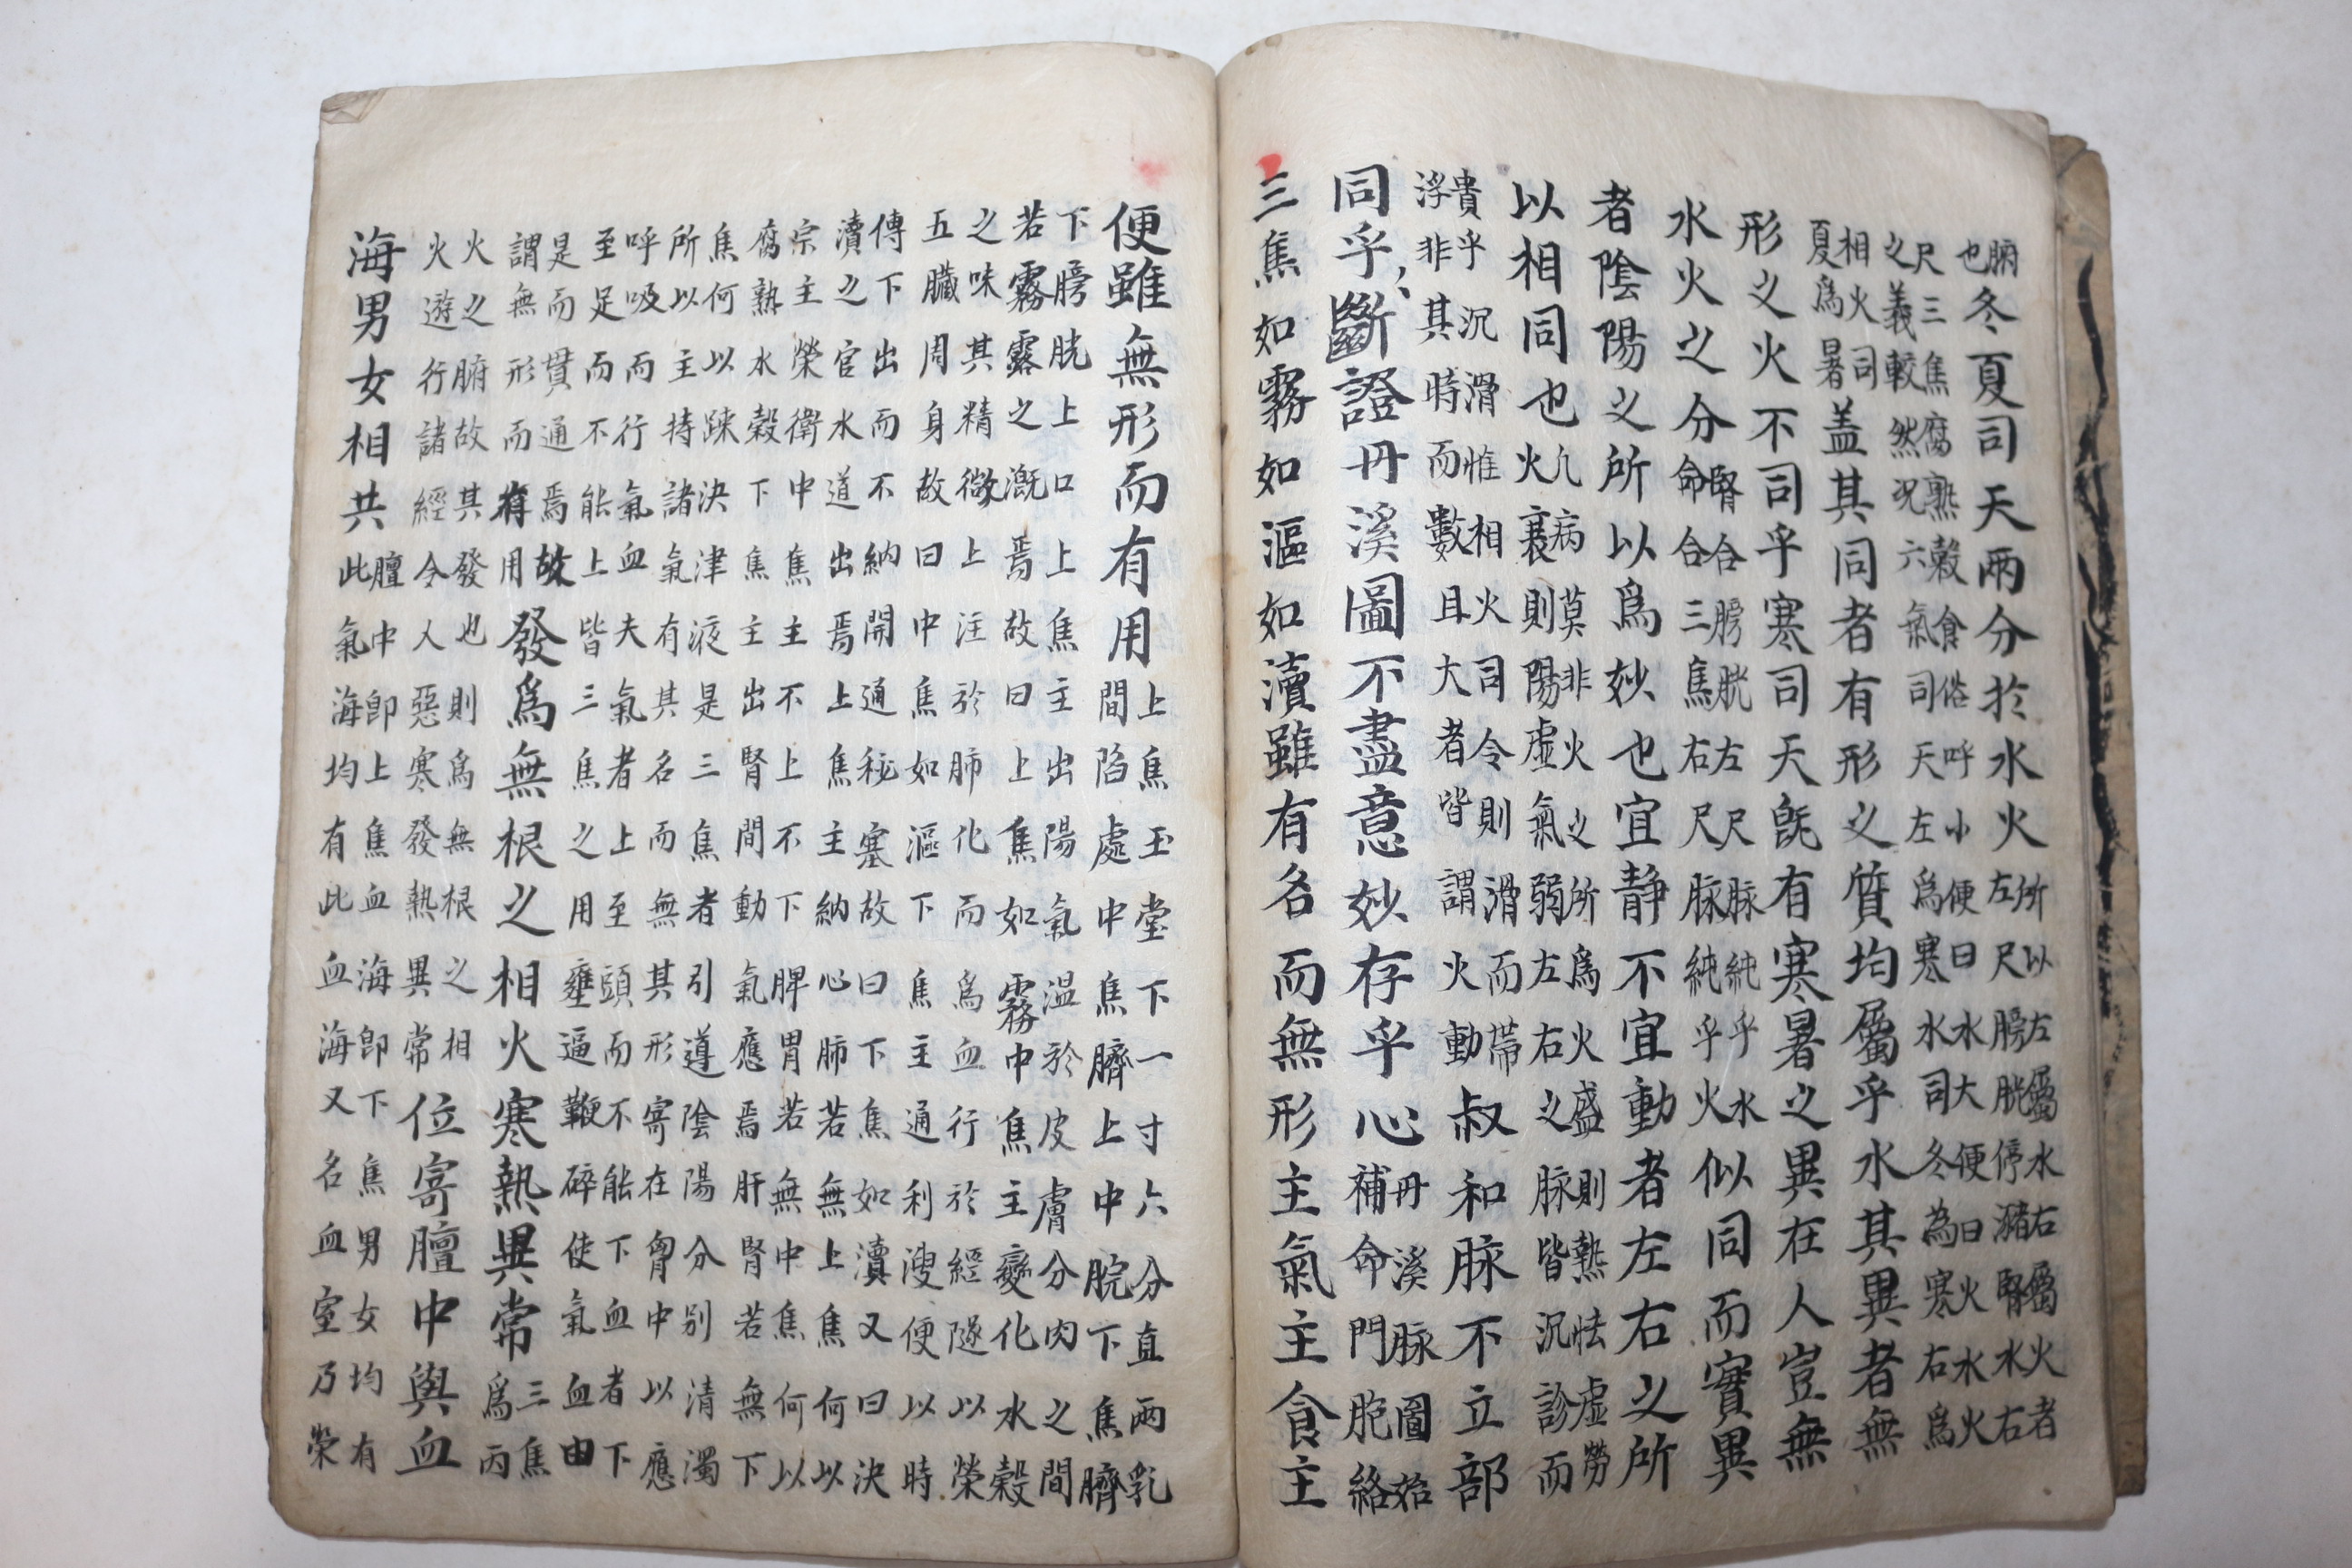 腑
也
冬夏司天兩分於水火
所以左屬水右屬火者
左尺膀胱停瀦腎水右
尺三焦腐熟穀食俗呼小便曰水大便曰火水火
之義較然況六氣司天左爲寒水司冬為寒右爲
相火司
夏爲暑
盖其同者有形之質均屬乎水其異者無
形之火不司乎寒司天旣有寒暑之異在人豈無
水火之分
腎合膀胱左尺脉純乎水
命合三焦右尺脉純乎火
似同而實異
者陰陽之所以爲妙也宜静不宜動者左右之所
以相同也
凢病莫非火之所爲火盛則熱怯虛勞
火衰則陽虛氣弱左右之脉皆沉診而
貴乎沉滑惟相火司令則滑而帯
浮非其時而數且大者皆謂火動
叔和脉不立部
同乎斷證丹溪圖不盡意妙存乎心
丹溪脉圖始
補命門胞絡
三焦如霧如漚如瀆雖有名而無形主氣主食主
便雖無形而有用
上焦玉堂下一寸六分直兩乳
間陷處中焦臍上中脘下焦臍
下膀胱上口上焦主出陽氣温於皮膚分肉之間
若霧露之漑焉故曰上焦如霧中焦主變化水穀
之味其精微上注於肺化而爲血行於經隧以榮
五臟周身故曰中焦如漚下焦主通利溲便以時
傳下出而不納開通秘塞故曰下焦如瀆又曰決
瀆之官水道出焉上焦主納心肺若無上焦何以
宗主榮衛中焦主不上不下脾胃若無中焦何以
腐熟水穀下焦主出腎間動氣應焉肝腎若無下
焦何以踈決津液是三焦者引導陰陽分别清濁
所以主持諸氣有其名而無其形寄在胷中以應
呼吸而行氣血夫氣者上至頭而不能下血者下
至足而不能上皆三焦之用壅遏鞭碎使氣血由
是而貫通焉故
謂無形而有用
發爲無根之相火寒熱異常
三焦
爲丙
火之腑故其發也則爲無根之相
火遊行諸經令人惡寒發熱異常
位寄膻中與血
海男女相共
膻中即上焦血海即下焦男女均有
此氣海均有此血海又名血室乃榮